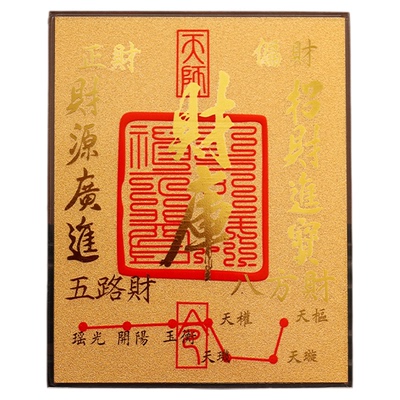 正財
天師
偏財
財源廣進
財庫
招財進寶
五路財
八方財
瑤光
開陽
玉衡
天權
天樞
天璇